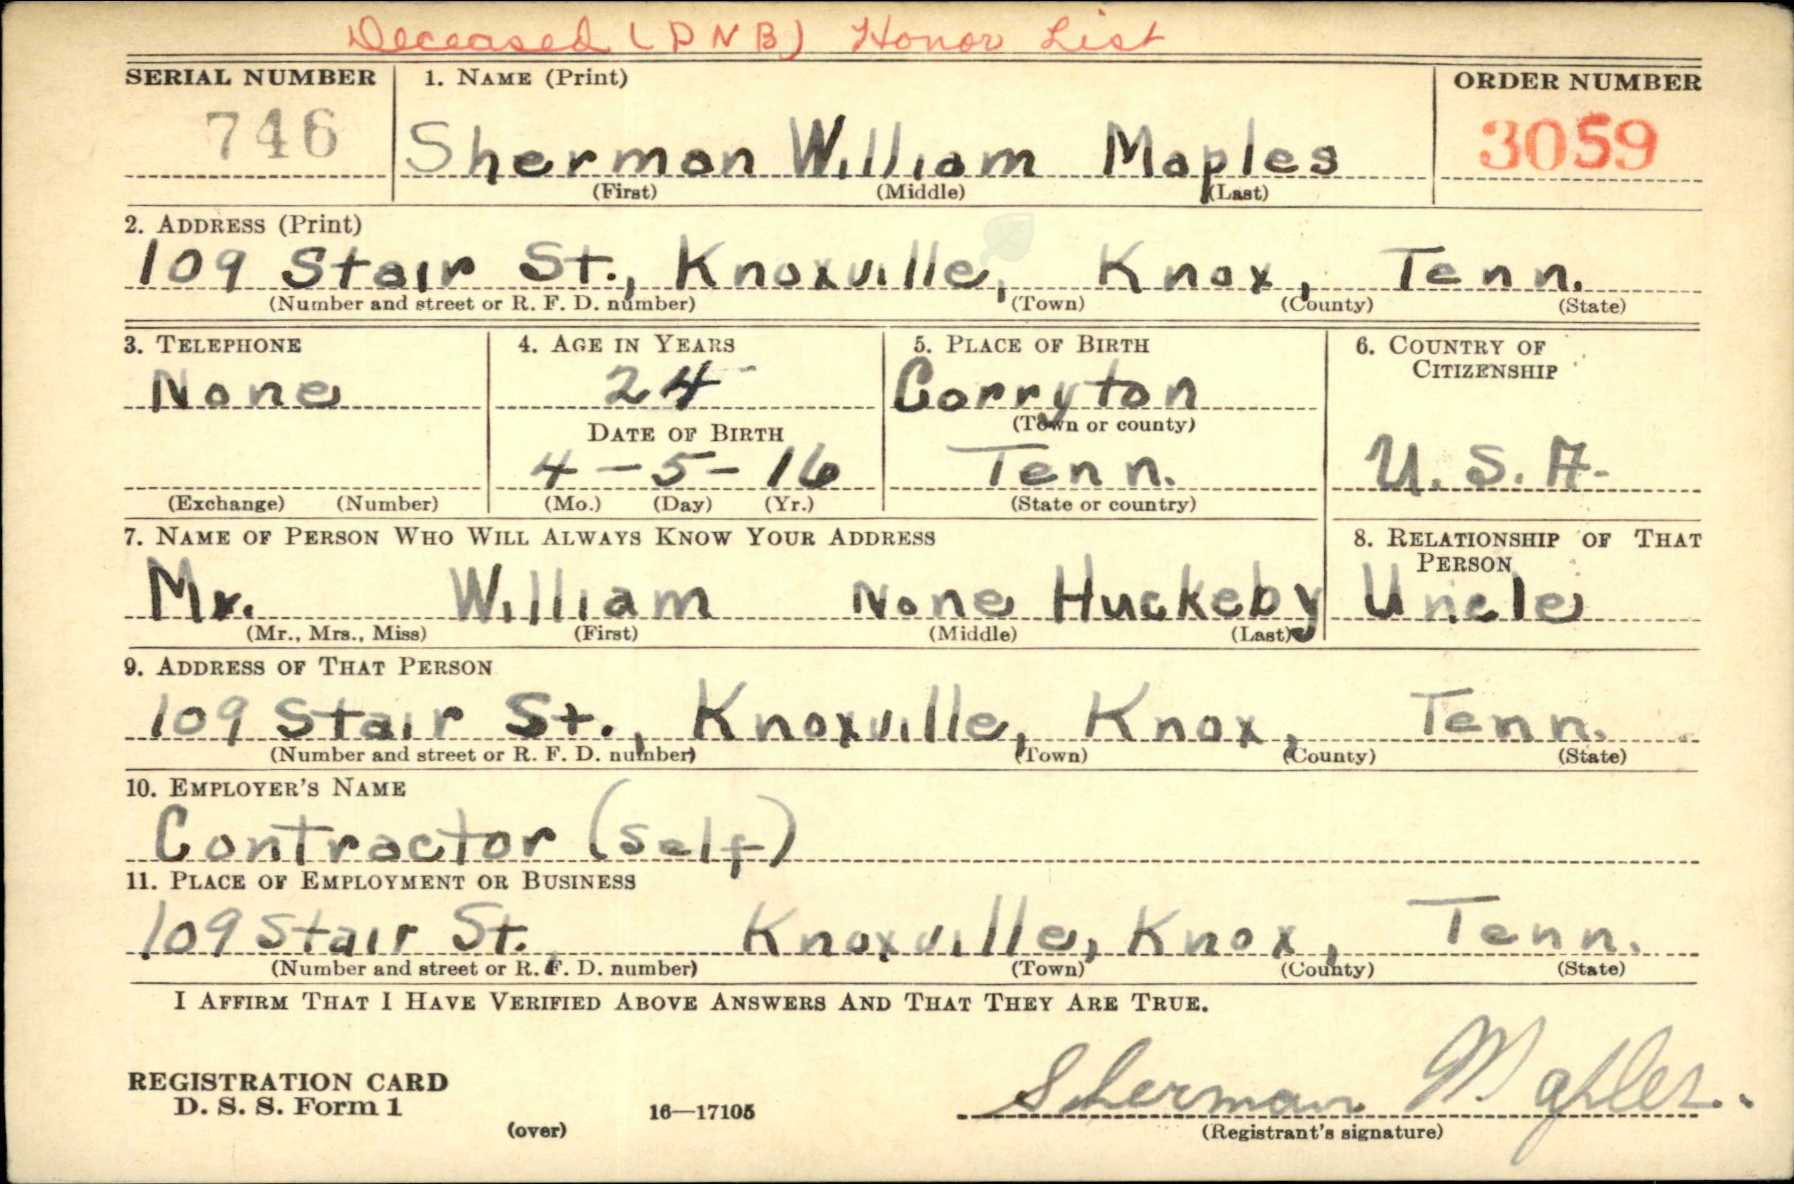 Deceased (DNB) Honor List
SERIAL NUMBER 1. NAME (Print) ORDER NUMBER
746 Sherman William Maples 3059
(First) (Middle) (Last)
2. ADDRESS (Print)
109 Stair St., Knoxville, Knox, Tenn.
(Number and street or R. F. D. number) (Town) (County) (State)
3. TELEPHONE 4. AGE IN YEARS 5. PLACE OF BIRTH 6. COUNTRY OF CITIZENSHIP
None 24 Corryton
(Town or county)
DATE OF BIRTH
4-5-16 Tenn. U. S. A.
(Exchange) (Number) (Mo.) (Day) (Yr.) (State or country)
7. NAME OF PERSON WHO WILL ALWAYS KNOW YOUR ADDRESS 8. RELATIONSHIP OF THAT PERSON
Mr. William None Huckeby Uncle
(Mr., Mrs., Miss) (First) (Middle) (Last)
9. ADDRESS OF THAT PERSON
109 Stair St., Knoxville, Knox, Tenn.
(Number and street or R. F. D. number) (Town) (County) (State)
10. EMPLOYER'S NAME
Contractor (self)
11. PLACE OF EMPLOYMENT OR BUSINESS
109 Stair St. Knoxville, Knox, Tenn.
(Number and street or R. F. D. number) (Town) (County) (State)
I AFFIRM THAT I HAVE VERIFIED ABOVE ANSWERS AND THAT THEY ARE TRUE.
Sherman Maples.
REGISTRATION CARD
D. S. S. Form 1 16—17105
(over) (Registrant's signature)